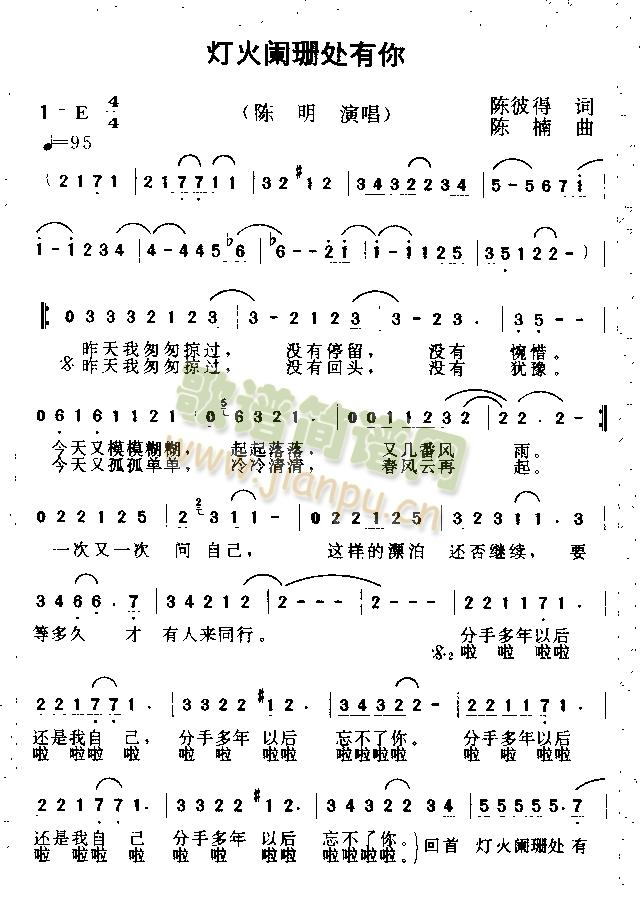 灯火阑珊处有你
1-E 4/4 （陈 明 演唱） 陈彼得 词
♩=95 陈 楠 曲
（2171 | 217711 | 32 #12 | 3432234 | 5-5671
1-1234 | 4-445♭6 | ♭6--21 | 1-1125 | 35122-）
03332123 | 3-2123 | 3--23. | 35--
昨天我匆匆掠过， 没有停留， 没有 惋惜。
昨天我匆匆掠过， 没有回头， 没有 犹豫。
06161121 | 0 5 6321. | 0011232 | 22.2-
今天又模模糊糊， 起起落落， 又几番风 雨。
今天又孤孤单单， 冷冷清清， 春风云再 起。
歌谱简谱网
www.jianpu.cn
022125 | 2 2 311- | 022125 | 32312.3
一次又一次 问 自己， 这样的漂泊 还否继续， 要
3466.7 | 34212 | 2--- | 2--- | 221171.
等多久 才 有人来同行。 分手多年以后
啦 啦 啦啦
221771. | 3322 #12. | 34322. | 221171.
还是我自 己， 分手多年 以后 忘不了你。 分手多年以后
啦 啦啦啦 啦 啦 啦 啦啦 啦啦啦啦 啦 啦 啦啦
221771. | 3322 #12. | 34322 34 | 55555.7
还是我自 己 分手多年 以后 忘不了你。 回首 灯火阑珊处 有
啦 啦啦啦 啦 啦 啦 啦啦 啦啦啦啦。）